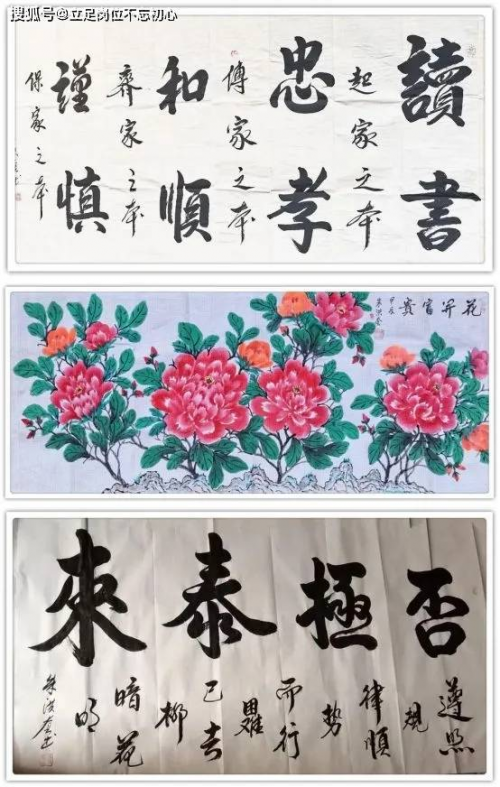 搜狐号@立足岗位不忘初心
讀書
起家之本
忠孝
傳家之本
和順
齊家之本
謹慎
保家之本
花开富貴
甲辰
否極泰來
遵照
規
律順
勢
而行
已去
柳
暗花
明